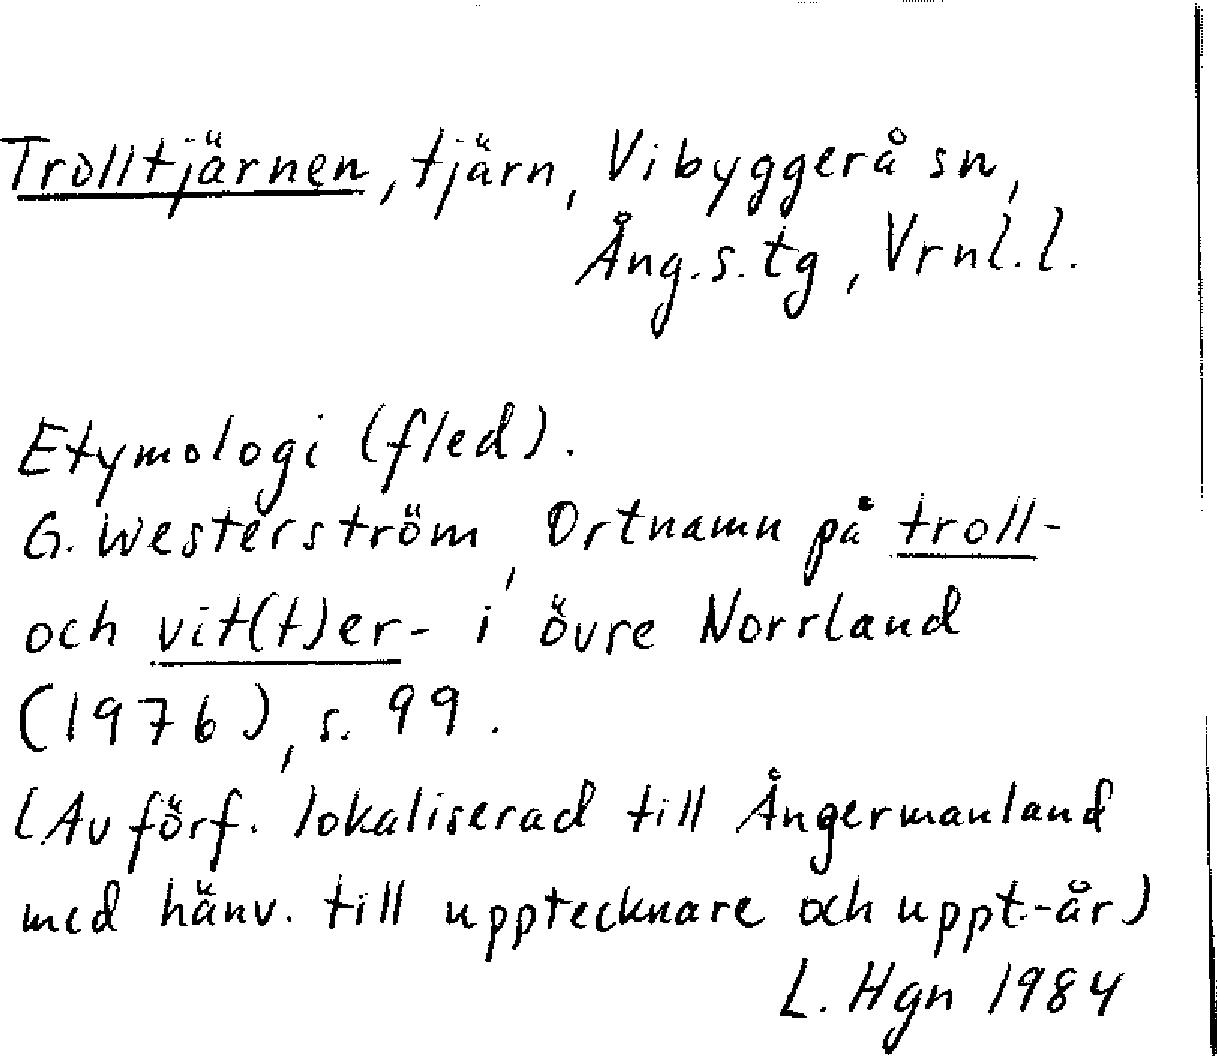 Trolltjärnen, tjärn, Vibyggerå sn,
Ång.s.tg, Vrnl.l.
Etymologi (fled).
G. Westerström, Ortnamn på troll-
och vit(t)er- i övre Norrland
(1976), s. 99.
(Av förf. lokaliserad till Ångermanland
med hänv. till upptecknare och uppt.-år)
L. Hgn 1984